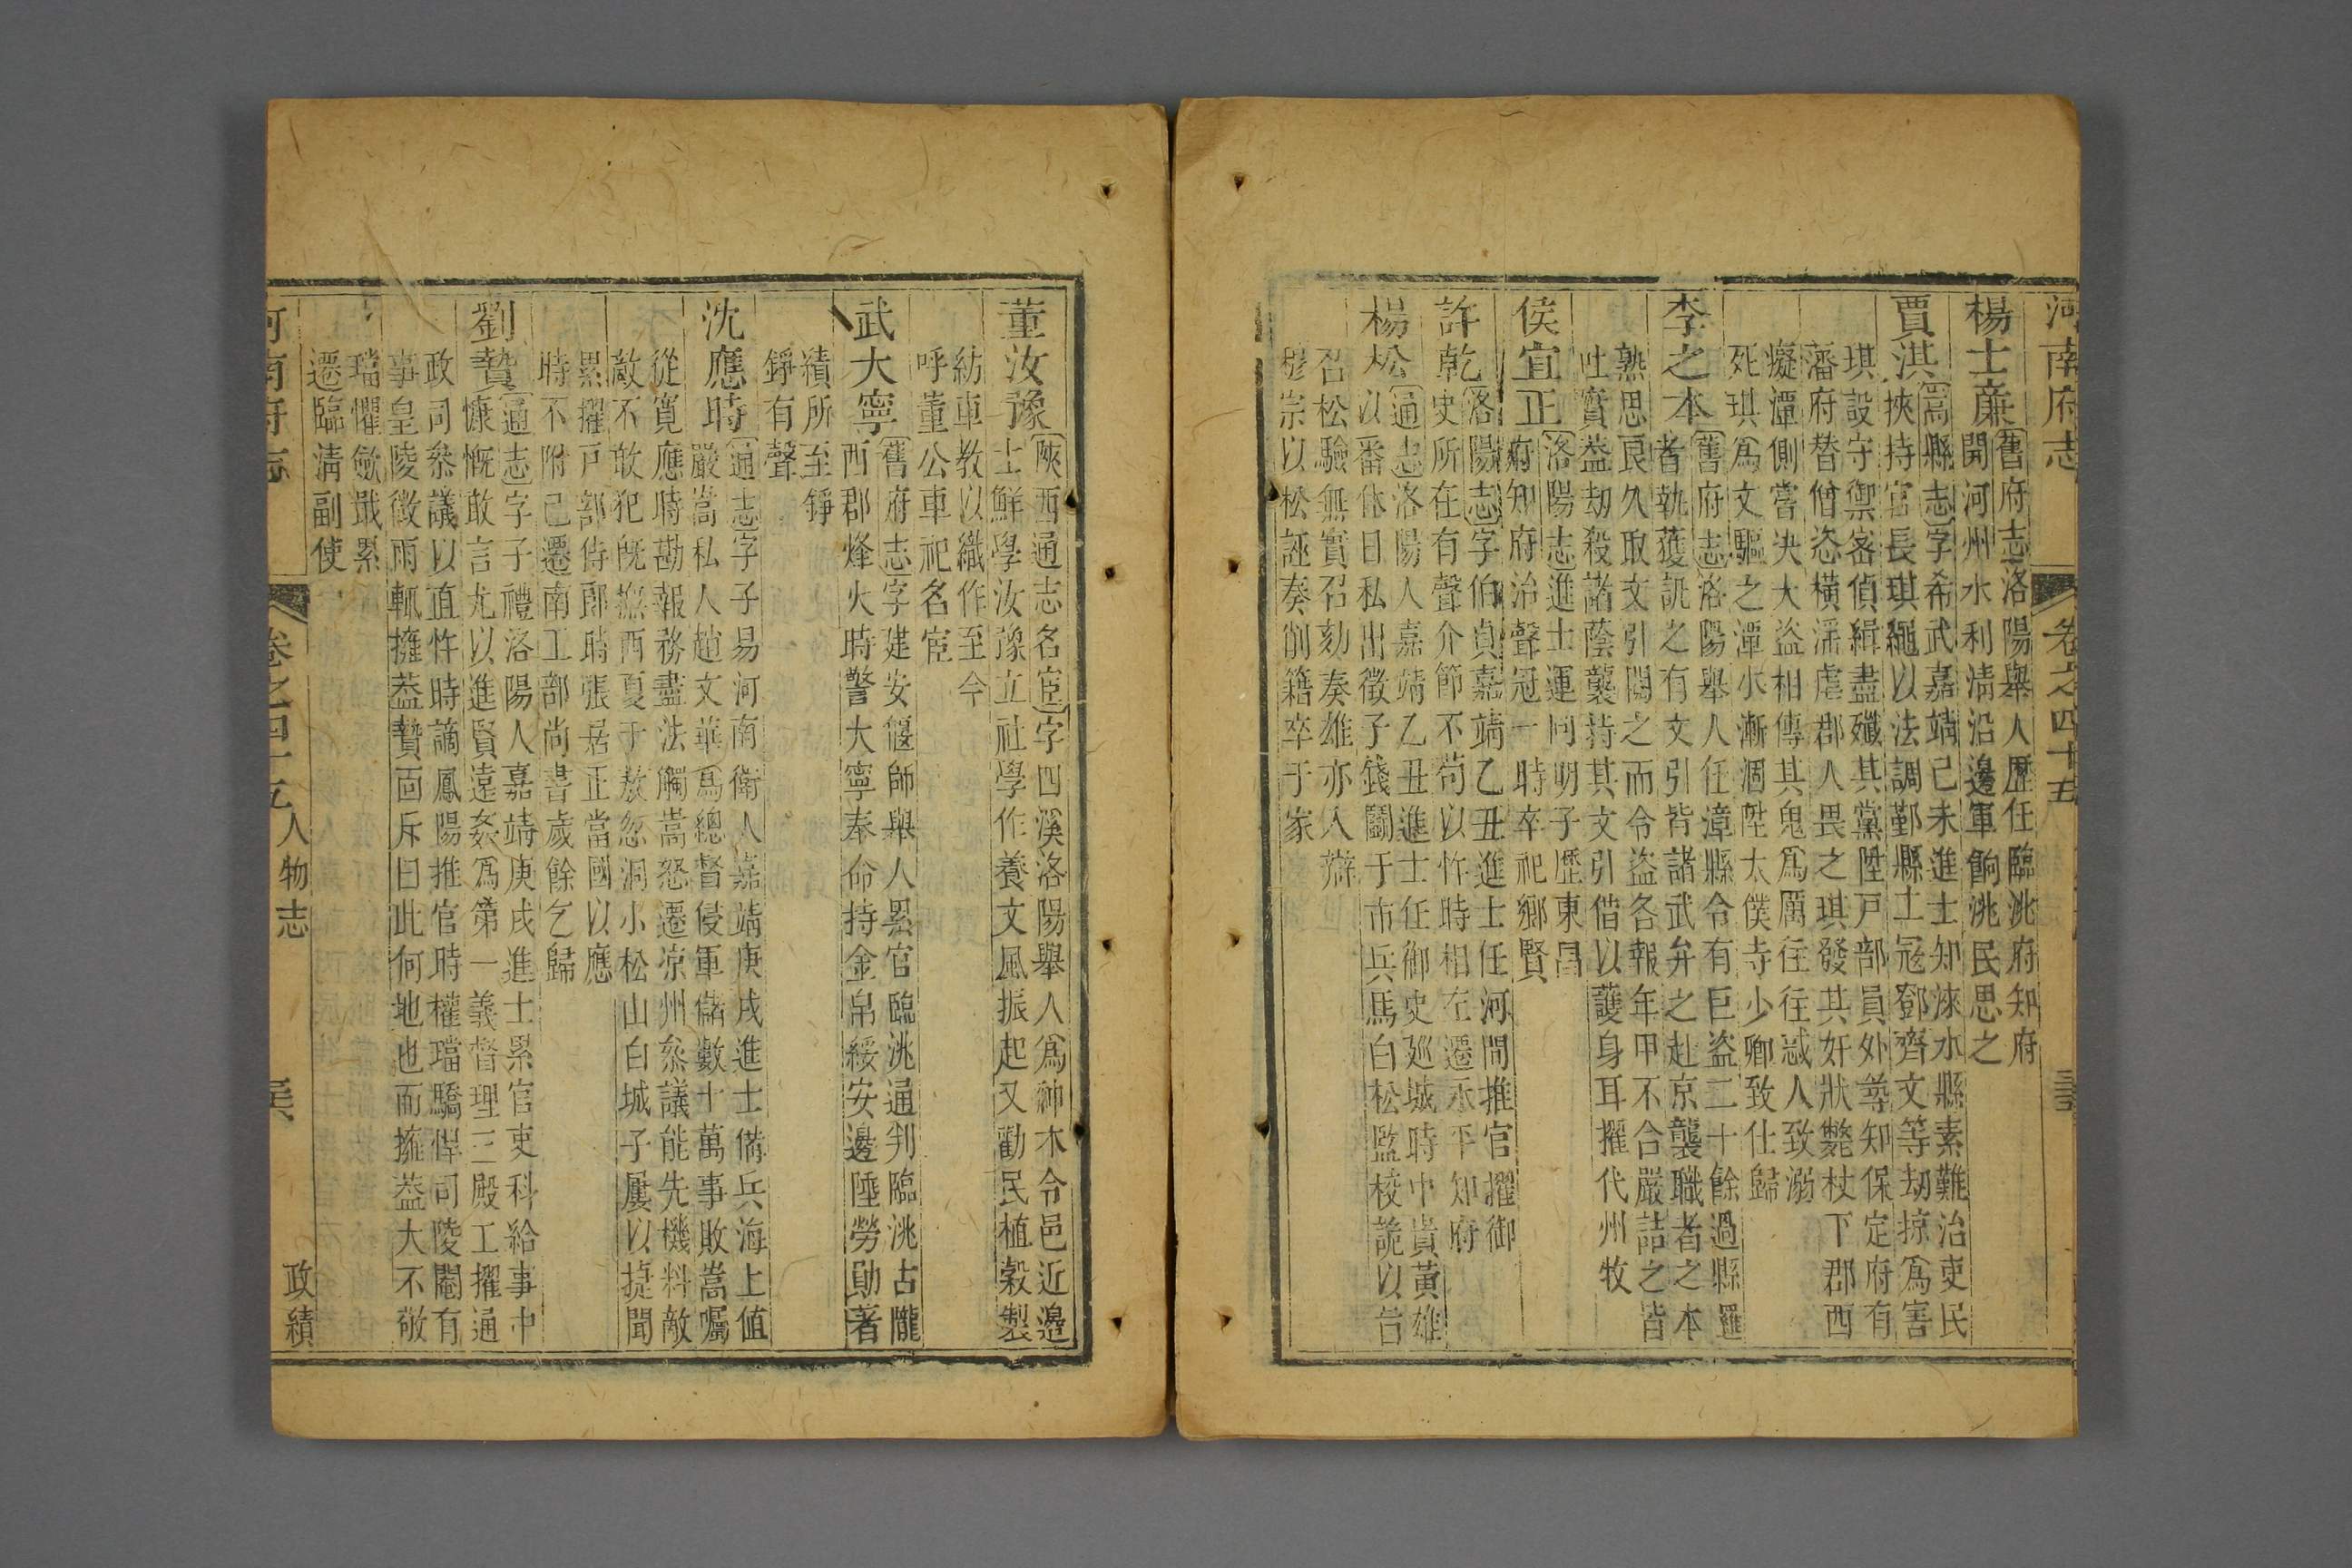 河南府志
卷之四十五
楊士廉舊府志洛陽舉人歷任臨洮府知府
開河州水利清沿邊軍餉洮民思之
賈淇嵩縣志字希武嘉靖己未進士知淶水縣素難治吏民
挾持官長琪繩以法調鄞縣土冦鄧齊文等刼掠為害
琪設守禦密偵緝盡殲其黨陞戸部員外尋知保定府有
藩府替僧恣橫滛虐郡人畏之琪發其奸狀斃杖下郡西
癡潭側嘗决大盜相傳其鬼爲厲往往惑人致溺
死琪爲文驅之潭水漸涸陞太僕寺少卿致仕歸
李之本舊府志洛陽舉人任漳縣令有巨盜二十餘過縣邏
者執獲訊之有文引皆諸武弁之赴京襲職者之本
熟思良久取文引閱之而令盜各報年甲不合嚴詰之皆
吐實葢刼殺諸蔭襲持其文引借以護身耳擢代州牧
侯宜正洛陽志進士運同明子歷東昌
府知府治聲冠一時卒祀鄉賢
許乾洛陽志字伯貞嘉靖乙丑進士任河間推官擢御
史所在有聲介節不苟以忤時相左遷永平知府
楊松通志洛陽人嘉靖乙丑進士任御史廵城時中貴黃雄
以番休日私出徵子錢鬭于市兵馬白松監校詭以旨
召松驗無實召劾奏雄亦入辯
穆宗以松誣奏削籍卒于家
董汝豫陝西通志名宦字四溪洛陽舉人爲神木令邑近邊
士鮮學汝豫立社學作養文風振起又勸民植榖製
紡車教以織作至今
呼董公車祀名宦
武大寧舊府志字建安偃師舉人累官臨洮通判臨洮占隴
西郡烽火時警大寧奉命持金帛綏安邊陲勞勛著
績所至錚
錚有聲
沈應時通志字子易河南衛人嘉靖庚戌進士備兵海上值
嚴嵩私人趙文華爲總督侵軍儲數十萬事敗嵩囑
從寛應時勘報務盡法觸嵩怒遷凉州叅議能先機料敵
敵不敢犯旣撫西夏于敖忽洞小松山白城子屢以捷聞
累擢戸部侍郎時張居正當國以應
時不附己遷南工部尚書歲餘乞歸
劉贄通志字子禮洛陽人嘉靖庚戌進士累官吏科給事中
慷慨敢言尤以進賢遠姦爲第一義督理三殿工擢通
政司叅議以直忤時謫鳳陽推官時權璫驕悍司陵閹有
事皇陵徵雨輒擁葢贄面斥曰此何地也而擁葢大不敬
璫懼歛戢累
遷臨清副使
河南府志
卷之四十五
人物志
政績